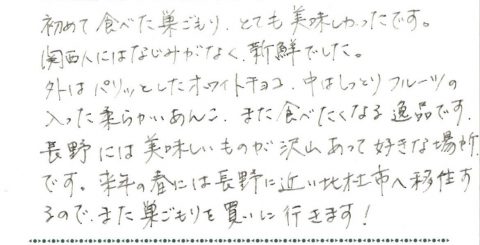 初めて食べた巣ごもり、とても美味しかったです。
関西人にはなじみがなく、新鮮でした。
外はパリッとしたホワイトチョコ、中はしっとりフルーツの
入った柔らかいあんこ、また食べたくなる逸品です。
長野には美味しいものが沢山あって好きな場所
です。来年の春には長野に近い北杜市へ移住す
るので、また巣ごもりを買いに行きます!